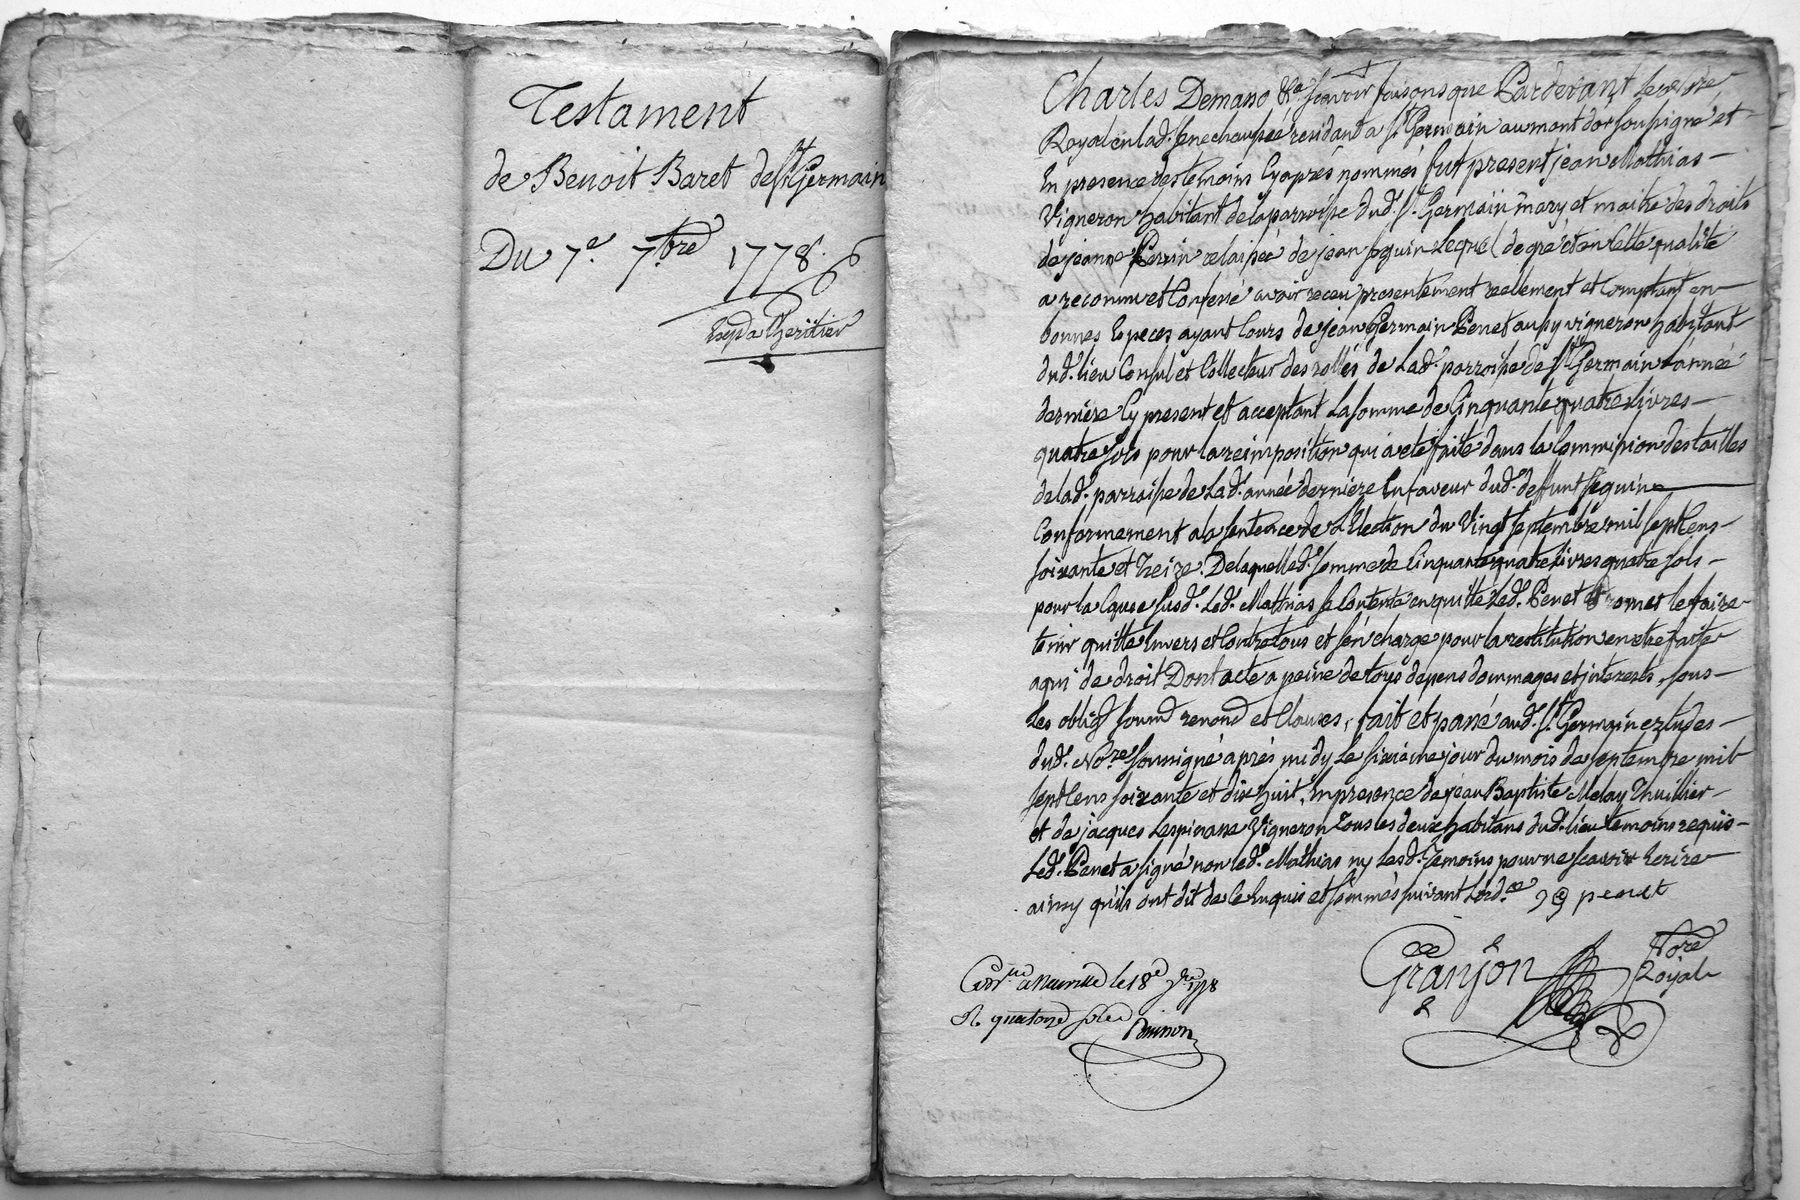 Testament
de Benoit Baret de St. Germain
Du 7.e 7.bre 1778.
Exp. a l'heritier
Charles Demaso &a. scavoir faisons que Pardevant le no.re
Royal en lad. senechaussée residant a St. Germain au mont dor soussigné et
En presence des temoins Cy après nommés fut present jean Mathias
Vigneron habitant de la parroisse dud. St. Germain mary et maitre des droits
de jeanne Perrin relaissée de jean sequin lequel de gré et en Cette qualité
a reconnu et Confessé avoir receu presentement reelement et Comptant en
bonnes Especes ayant Cours de jean Germain Penet aussy vigneron habitant
dud. lieu Consul et Collecteur des rolles de Lad. parroisse de St. Germain L'année
derniere Cy present et acceptant La somme de Cinquante quatre Livres
quatre sols pour la reimposition qui a eté faite dans la Commission des tailles
de lad. parroisse de Lad. année derniere En faveur dud. deffunt sequin
Conformement a la sentence de L'Election du Vingt septembre mil sept Cens
soixante et Treize. De laquelle d. somme de Cinquante quatre Livres quatre sols
pour la Cause susd. Led. Mathias se Contente en quitte Led. Penet Promet le faire
tenir quitte Envers et Contre tous et s'en charge pour la restitution en etre faite
a qui de droit Dont acte a peine de tous depens dommages et interests, sous
Les oblig.s soum.s renond et Clauses, fait et passé aud. St. Germain etudes
dud. No.re soussigné après midy Le sixieme jour du mois de septembre mil
sept Cens soixante et dix huit, En presence de jean Baptiste Melay Thuillier
et de jacques Lespinasse Vigneron Tous les deux habitans dud. lieu temoins requis
Led. Penet a signé non led. Mathias ny Lesd. Temoins pour ne scavoir Ecrire
ainsy qu'ils ont dit de Ce Enquis et sommés suivant Lord.ce penet
Granjon No.re
Royal
Con.lle a Neuville le 18e 7bre 1778
R. quatorze sols